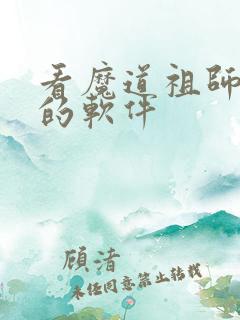 看魔道祖師
的軟件
顧清
未經同意禁止轉載